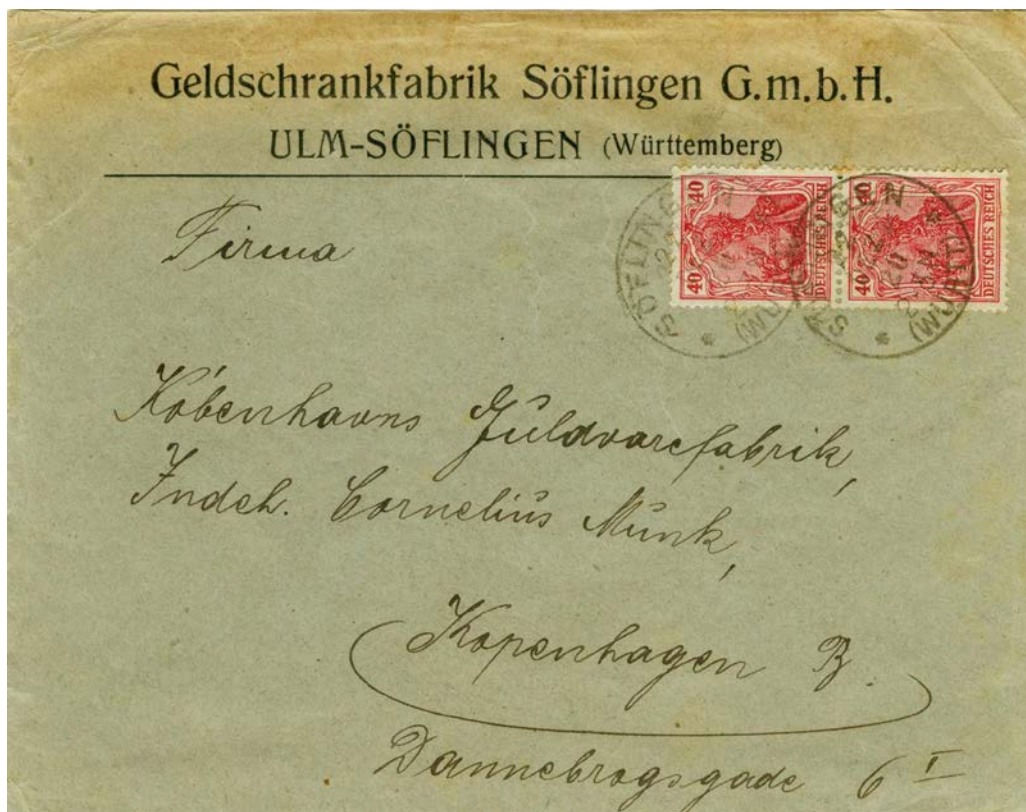 Geldschrankfabrik Söflingen G.m.b.H.
ULM-SÖFLINGEN (Württemberg)
40 40 DEUTSCHES REICH
40 40 DEUTSCHES REICH
SÖFLINGEN
(WÜRTT.)
20
Firma
Københavns Guldvarefabrik,
Indeh. Cornelius Munk,
Kopenhagen B.
Dannebrogsgade 6 I